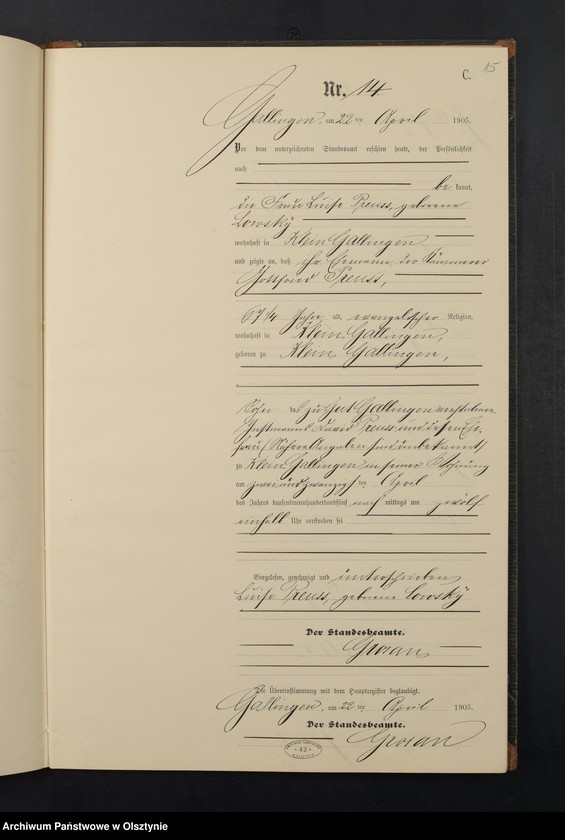 C.
15
Nr. 14
Gallingen, am 22 ten April 1905.
Vor dem unterzeichneten Standesamt erschien heute, der Persönlichkeit
nach
be kannt,
die Frau Luise Preuss, geborene
Lowsky
wohnhaft in Klein Gallingen
und zeigte an, daß ihr Ehemann, der Kämmerer
Gottfried Preuss,
67 1/4 Jahre alt, evangelischer Religion,
wohnhaft in Klein Gallingen,
geboren zu Klein Gallingen,
Sohn des zu Gut Gallingen verstorbenen
Instmanns David Preuss und dessen Ehe-
frau (Nähere Angaben sind unbekannt)
zu Klein Gallingen in seiner Wohnung
am zwei und zwanzigsten April
des Jahres tausendneunhundertundfünf nach mittags um zwölf
einhalb Uhr verstorben sei
Vorgelesen, genehmigt und unterschrieben
Luise Preuss, geborene Lowsky
Der Standesbeamte.
Die Übereinstimmung mit dem Hauptregister beglaubigt.
Gallingen, am 22 ten April 1905.
Der Standesbeamte.
42
Archiwum Państwowe w Olsztynie